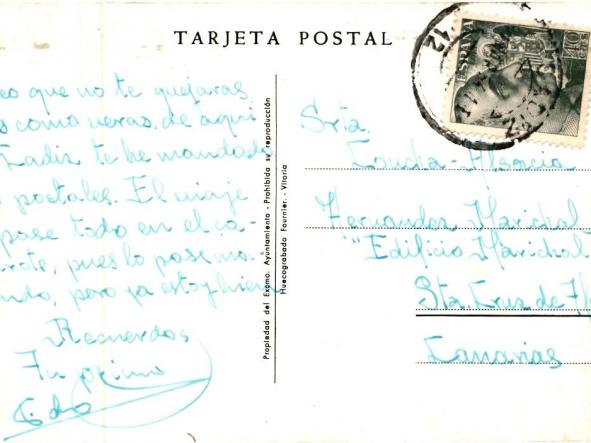 TARJETA POSTAL
eo que no te quejaras
s como veras, de aqui
Cadiz te he mandado
postales. El viaje
pase todo en el ca-
rote, pues lo pase ma-
pero ya estoy bien
Recuerdos
Tu primo
Propiedad del Excmo. Ayuntamiento - Prohibida su reproducción
Huecograbado Fournier. - Vitoria
ESPAÑA
40 CTS
12
Srta.
Hernandez Marichal
"Edificio Marichal"
Sta Cruz de
Canarias